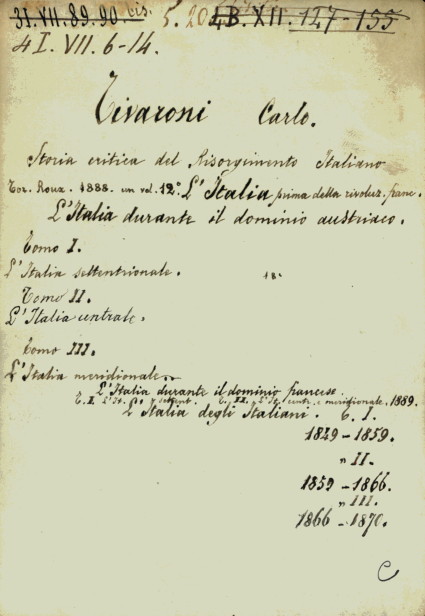 31. VII. 89. 90. bis. 5. 20 4B. XII. 127-155
4 I. VII. 6-14.
Tivaroni Carlo.
Storia critica del Risorgimento Italiano
Tor. Roux. 1888. un vol. 12.º L'Italia prima della rivoluz. franc.
L'Italia durante il dominio austriaco.
Tomo I.
L'Italia settentrionale.
Tomo II.
L'Italia centrale.
Tomo III.
L'Italia meridionale.
L'Italia durante il dominio francese.
T. I. L'It. settent. T. II. L'It. centr. e meridionale. 1889.
L'Italia degli Italiani. T. I.
1849-1859.
" II.
1859-1866.
" III.
1866-1870.
C